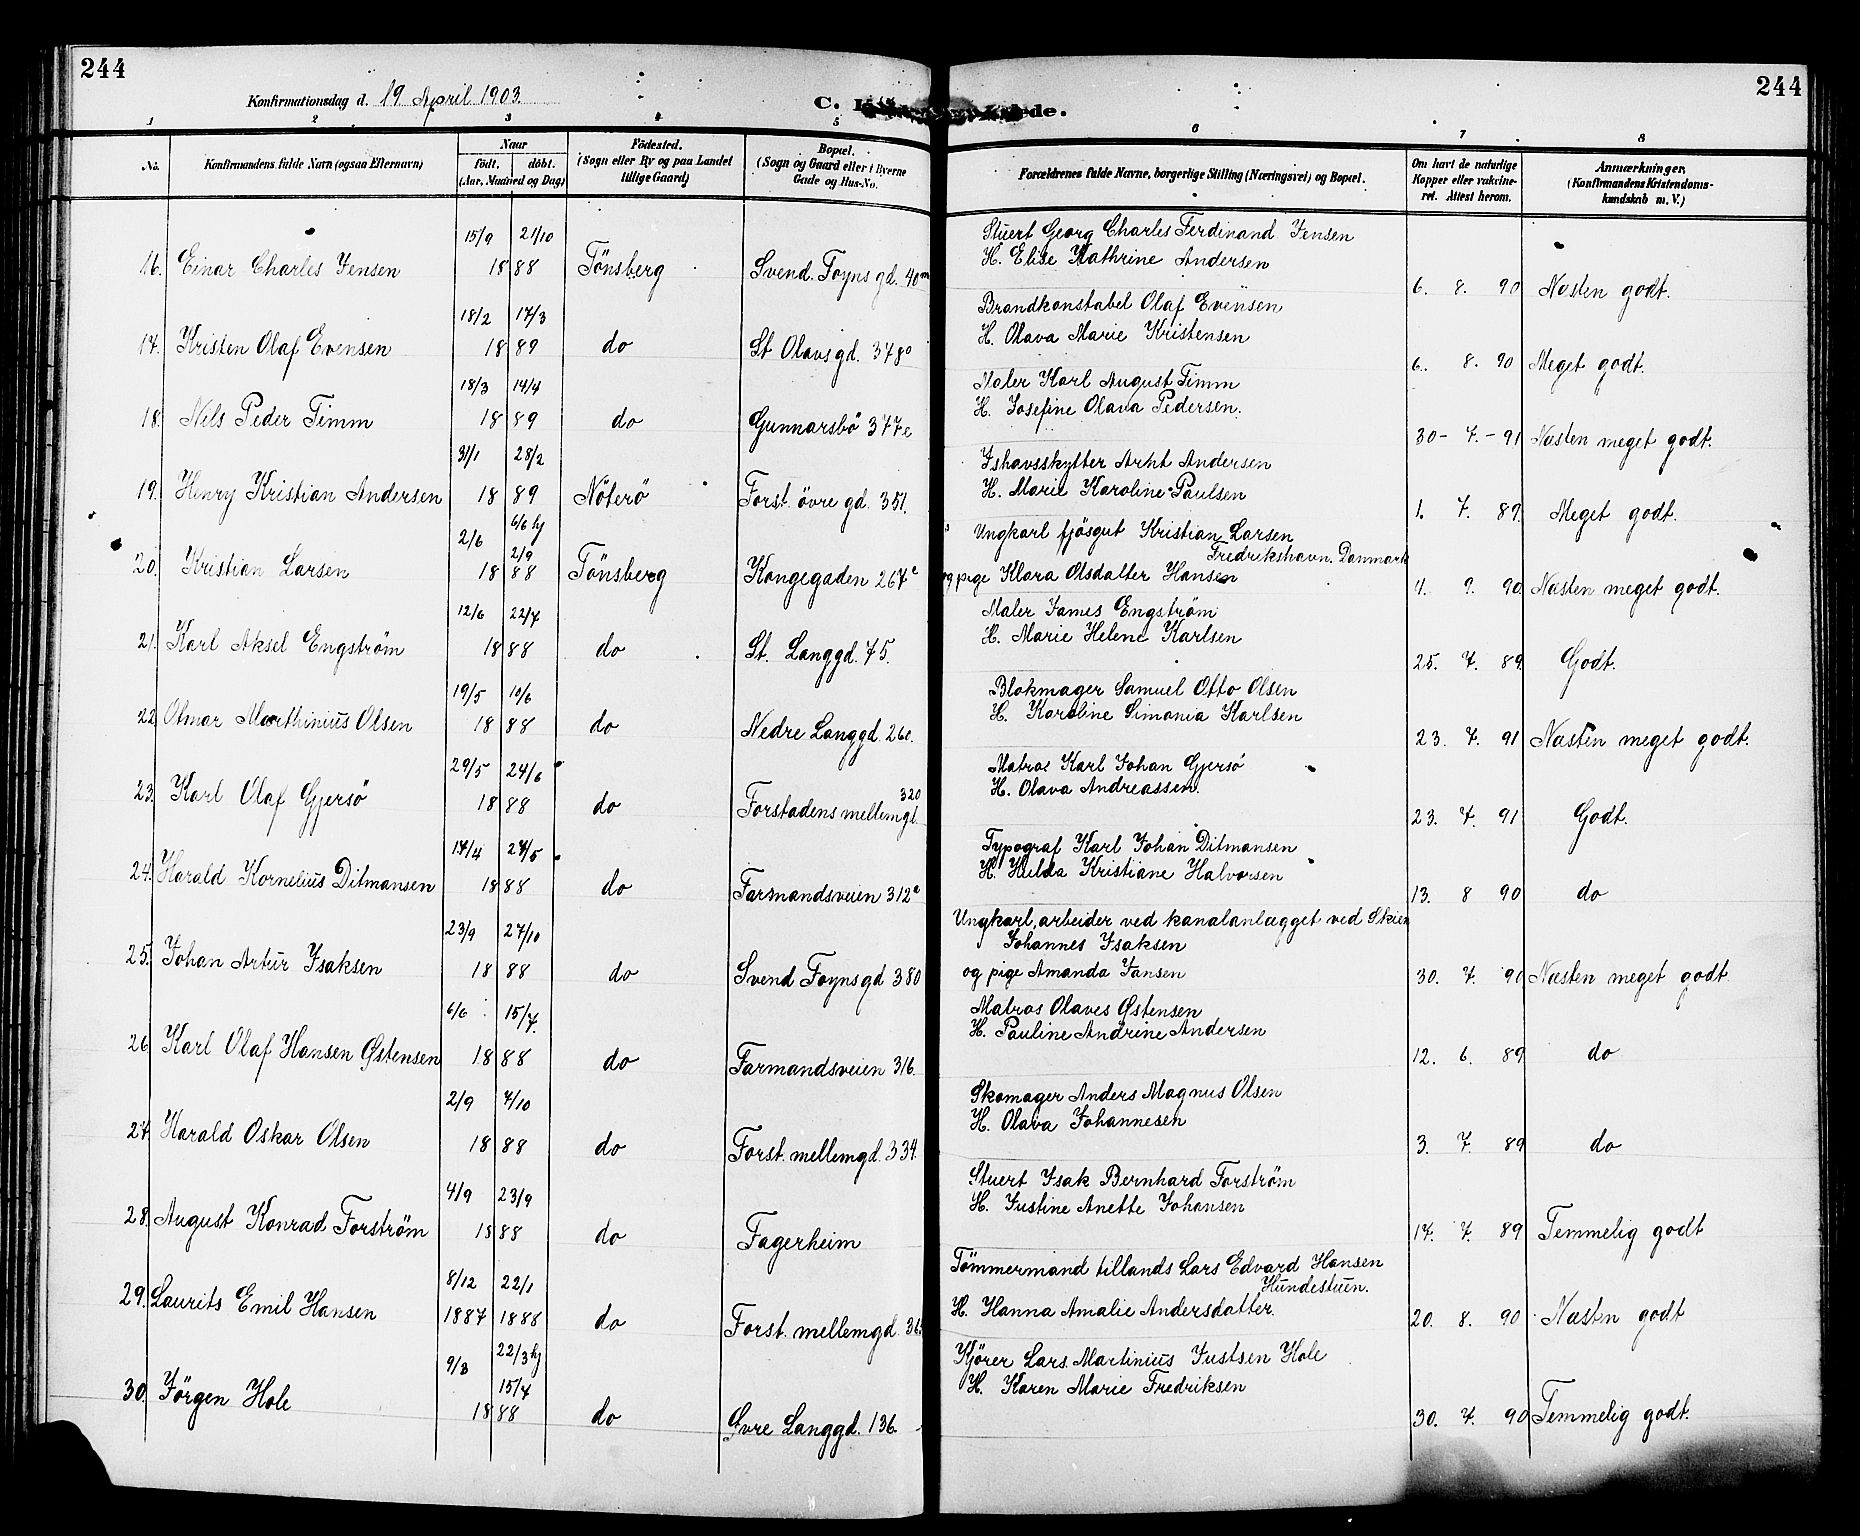 244
244
Konfirmationsdag d. 19 April 1903.
C.
1 2 3 4 5 6 7 8
No.
Konfirmandens fulde Navn (ogsaa Efternavn)
Naar
født. døbt.
(Aar, Maaned og Dag)
Fødested.
(Sogn eller By og paa Landet
tillige Gaard)
Bopæl.
(Sogn og Gaard eller i Byerne
Gade og Hus-No.
Forældrenes fulde Navne, borgerlige Stilling (Næringsvei) og Bopæl.
Om havt de naturlige
Kopper eller vakcine-
ret. Attest herom.
Anmærkninger,
(Konfirmandens Kristendoms-
kundskab m. V.)
15/9 21/10 Stuert Georg Charles Ferdinand Jensen
16. Einar Charles Jensen 18 88 Tönsberg Svend Foyns gd. 40m H. Elise Kathrine Andersen 6. 8. 90 Næsten godt.
18/2 17/3 Brandkonstabel Olaf Evensen
17. Kristen Olaf Evensen 18 89 do St Olavs gd. 378o H. Olava Marie Kristensen 6. 8. 90 Meget godt.
18/3 14/4 Maler Karl August Timm
18. Nils Peder Timm 18 89 do Gunnarsbö 377e H. Josefine Olava Pedersen. 30 - 7. - 91 Næsten meget godt.
31/1 28/2 Ishavsskytter Arnt Andersen
19. Henry Kristian Andersen 18 89 Nöterö Forst. övre gd. 351. H. Marie Karoline Paulsen 1. 7. 89. Meget godt.
2/6 6/6 hj 2/9 Ungkarl fjösgut Kristian Larsen
Fredrikshavn. Danmark
20. Kristian Larsen 18 88 Tönsberg Kongegaden 267e og pige Klara Olsdatter Hansen 4. 9. 90. Næsten meget godt.
12/6 22/7 Maler James Engström
21. Karl Aksel Engström 18 88 do St. Langgd. 75. H. Marie Helene Karlsen 25. 7. 89. Godt.
19/5 10/6 Blokmager Samuel Otto Olsen
22. Otmar Marthinius Olsen 18 88 do Nedre Langgd. 26e. H. Karoline Simonia Karlsen 23. 7. 91 Næsten meget godt.
29/5 24/6 Matros Karl Johan Gjersö
23. Karl Olaf Gjersö 18 88 do Forstadens mellemgt. 320 H. Olava Andreassen. 23. 7. 91 Godt.
17/4 27/5 Typograf Karl Johan Ditmansen
24. Harald Kornelius Ditmansen 18 88 do Farmandsveien 312e H. Hulda Kristiane Halvorsen 13. 8 90 do
23/9 27/10 Ungkarl, arbeider ved kanalanlægget ved Skien
Johannes Isaksen
25. Johan Artur Isaksen 18 88 do Svend Foyns gd 380 og pige Amanda Jansen 30. 7. 90 Næsten meget godt.
6/6 15/7. Matros Olaves Østensen
26 Karl Olaf Hansen Østensen 18 88 do Farmandsveien 316. H. Pauline Andrine Andersen 12. 6. 89 do
2/9 7/10 Skomager Anders Magnus Olsen
27. Harald Oskar Olsen 18 88 do Forst. mellemgd. 334. H. Olava Johannesen 3. 7. 89 do
4/9 23/9 Stuert Isak Bernhard Forström
28. August Konrad Forström 18 88 do Fagerheim H. Justine Anette Johansen 17. 7. 89 Temmelig godt
8/12 22/1 Tömmermand tillands Lars Edvard Hansen
Hundestuen.
29. Laurits Emil Hansen 1887 1888 do Forst. mellemgd. H. Hanna Amalie Andersdatter. 20. 8. 90 Næsten godt
9/3 22/3 hj 15/4 Kjörer Lars Martinius Justsen Hole
30. Jörgen Hole 18 88 do Øvre Langgd. 136. H. Karen Marie Fredriksen 30. 7. 90 Temmelig godt.